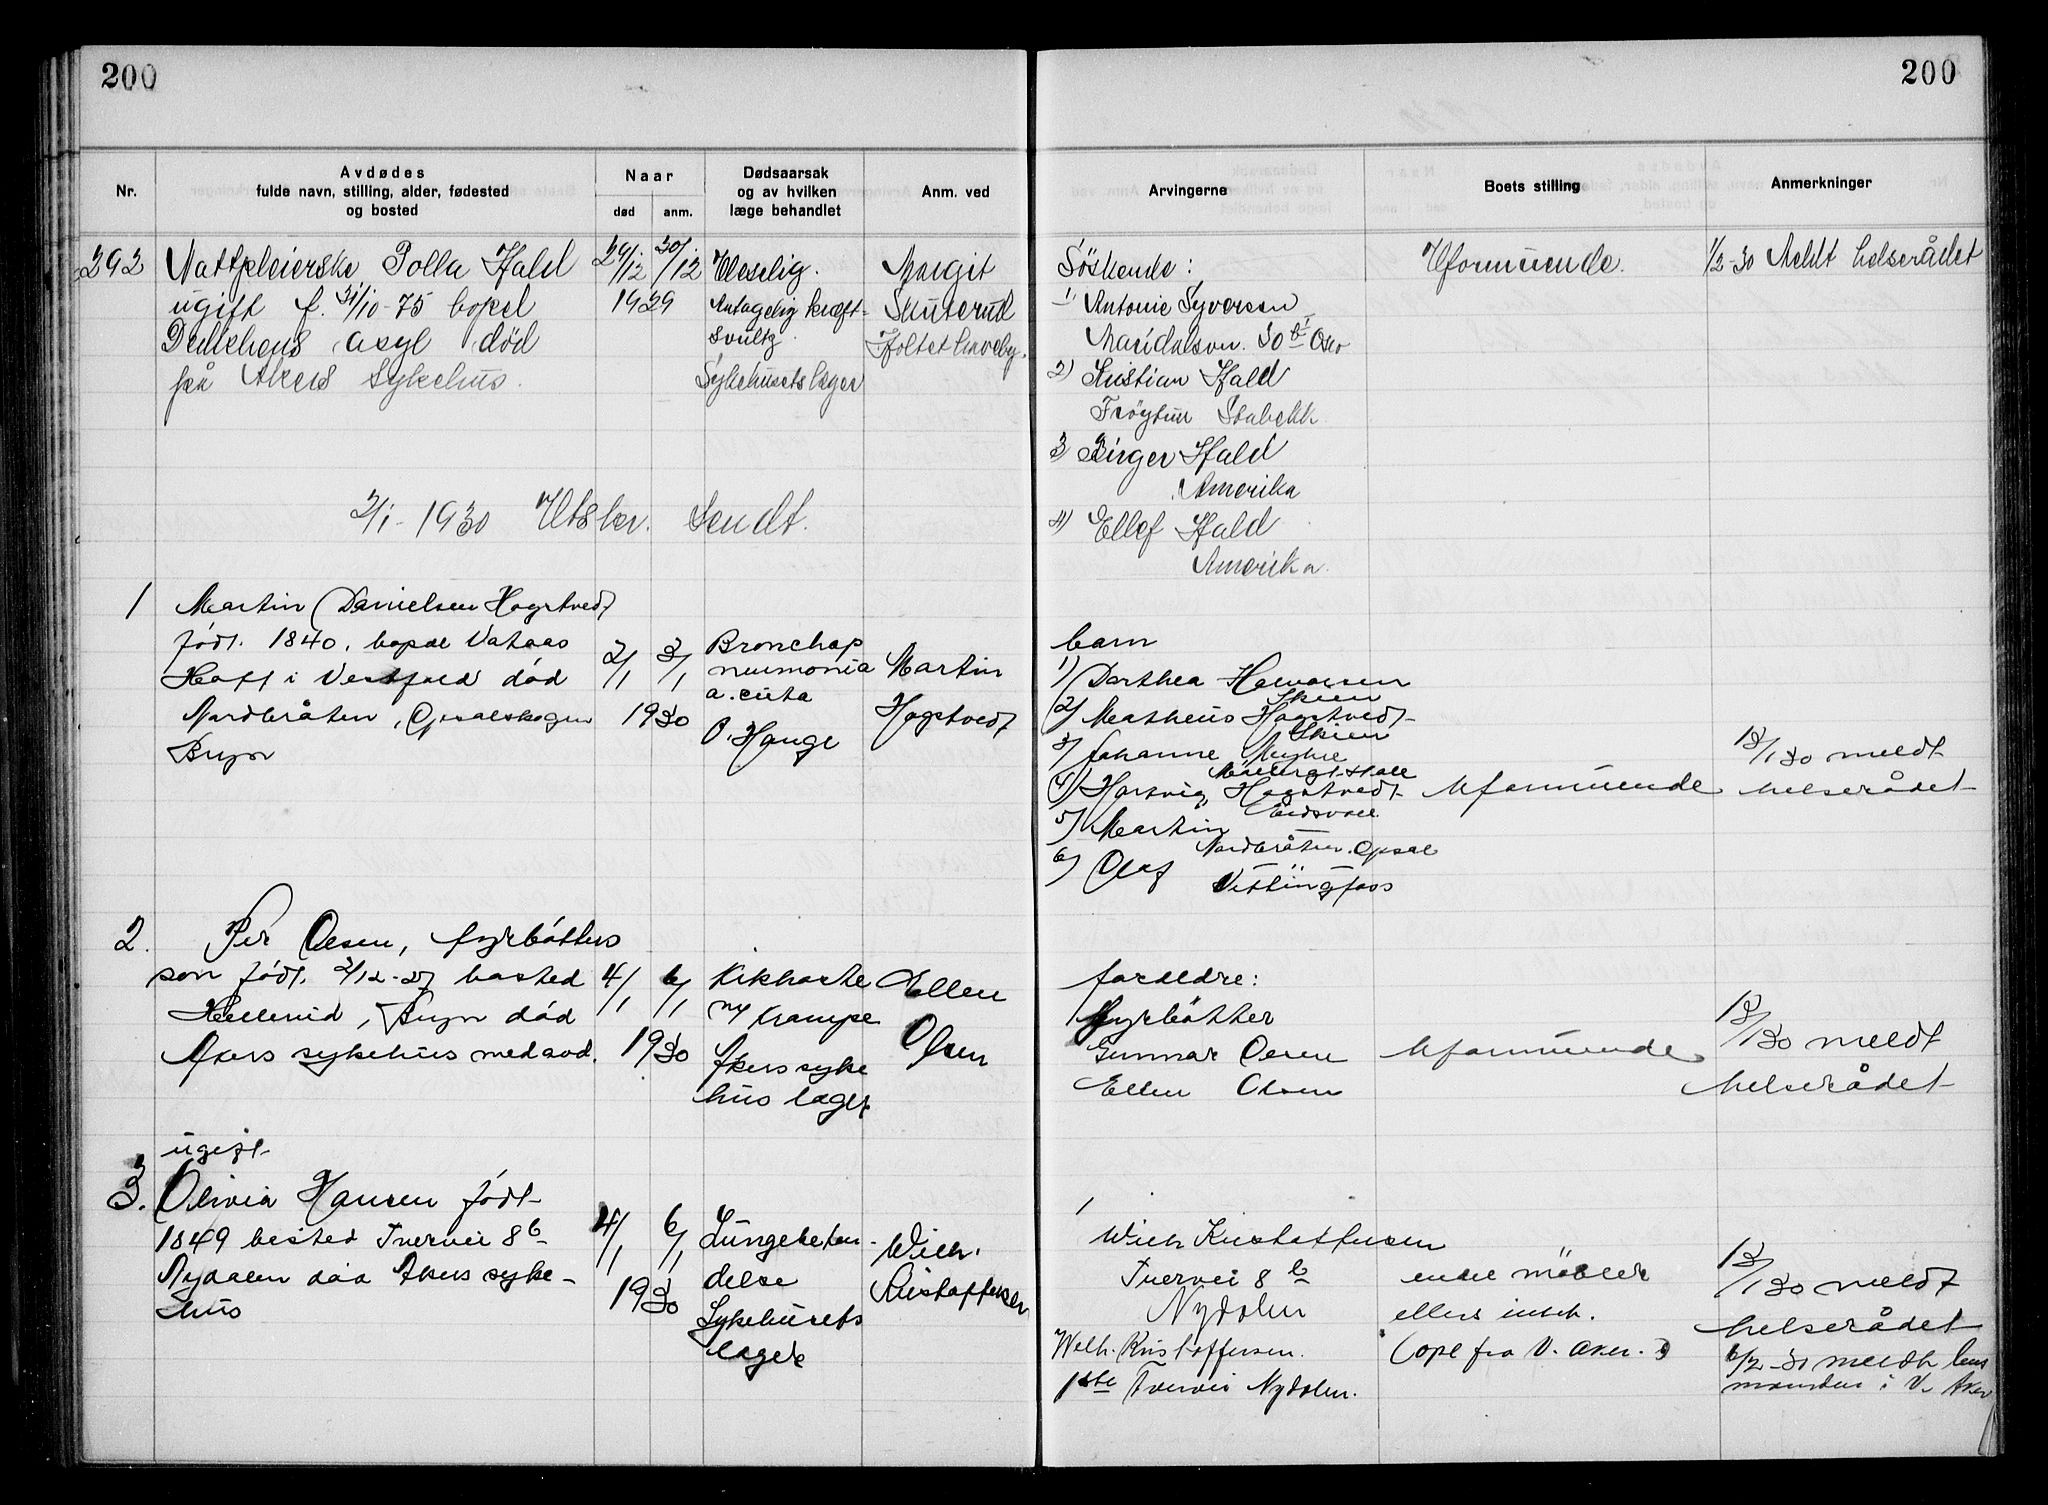 200
200
Nr.
Avdødes
fulde navn, stilling, alder, fødested
og bosted
Naar
død
anm.
Dødsaarsak
og av hvilken
læge behandlet
Anm. ved
Arvingerne
Boets stilling
Anmerkninger
292
Nattpleierske Polla Hald
ugift f. 31/10-75 bopel
asyl død
på Akers Sykehus.
29/12
30/12
1929
Antagelig kræft-
svulst
Sykehusets læger
Margit
Skuterud
Holtet haveby.
Søskende:
1) Antonie Syversen
Maridalsvn. 30 b I Oslo
2) Kristian Hald
Frøytun Stabekk
3) Birger Hald
Amerika
4) Ellef Hald
Amerika.
Uformuende.
1/2-30 Meldt helserådet
2/1-1930 Utskr. Sendt.
1
Martin Danielsen Hogstvedt
født. 1840. bopæl Vataas
Hoff i Vestfold død
Nordbråten, Opsalskogen
Bryn
2/1
3/1
1930
Bronchop
neumonia
acuta
O. Hauge
Martin
Hogstvedt
barn
1) Dorthea Halvorsen
Skien
2) Matheus Hogstvedt
Skien
3) Johanne Myhre
4) Hartvig Hogstvedt
Eidsvoll
5) Martin
Nordbråten. Opsal
6) Olaf
Vittingfoss
Uformuende
13/1 30 meldt
helserådet
2.
Per Olsen, fyrbøtters
søn født. 2/12-27 bosted
Hellerud, Bryn død
Akers sykehus med avd.
4/1
6/1
1930
Kikhoste
m/ krampe
Akers syke
hus læger
Ellen
Olsen
foreldre:
Fyrbøtter
Gunnar Olsen
Ellen Olsen
Uformuende
13/1 30 meldt
helserådet
ugift
3.
Olivia Hansen født
1849 bosted Tvervei 8b
Nydalen død Akers syke-
hus
4/1
6/1
1930
Lungebeten-
delse
Sykehusets
læger
Wilh.
Kristoffersen
1
Wilh Kristoffersen
Tvervei 8 b
Nydalen
Welh. Kristoffersen.
1ste Tvervei Nydalen.
endel møbler
ellers intet.
(opl fra V. Aker.)
13/1 30 meldt
helserådet
6/2-30 meldt lens
manden i V. Aker